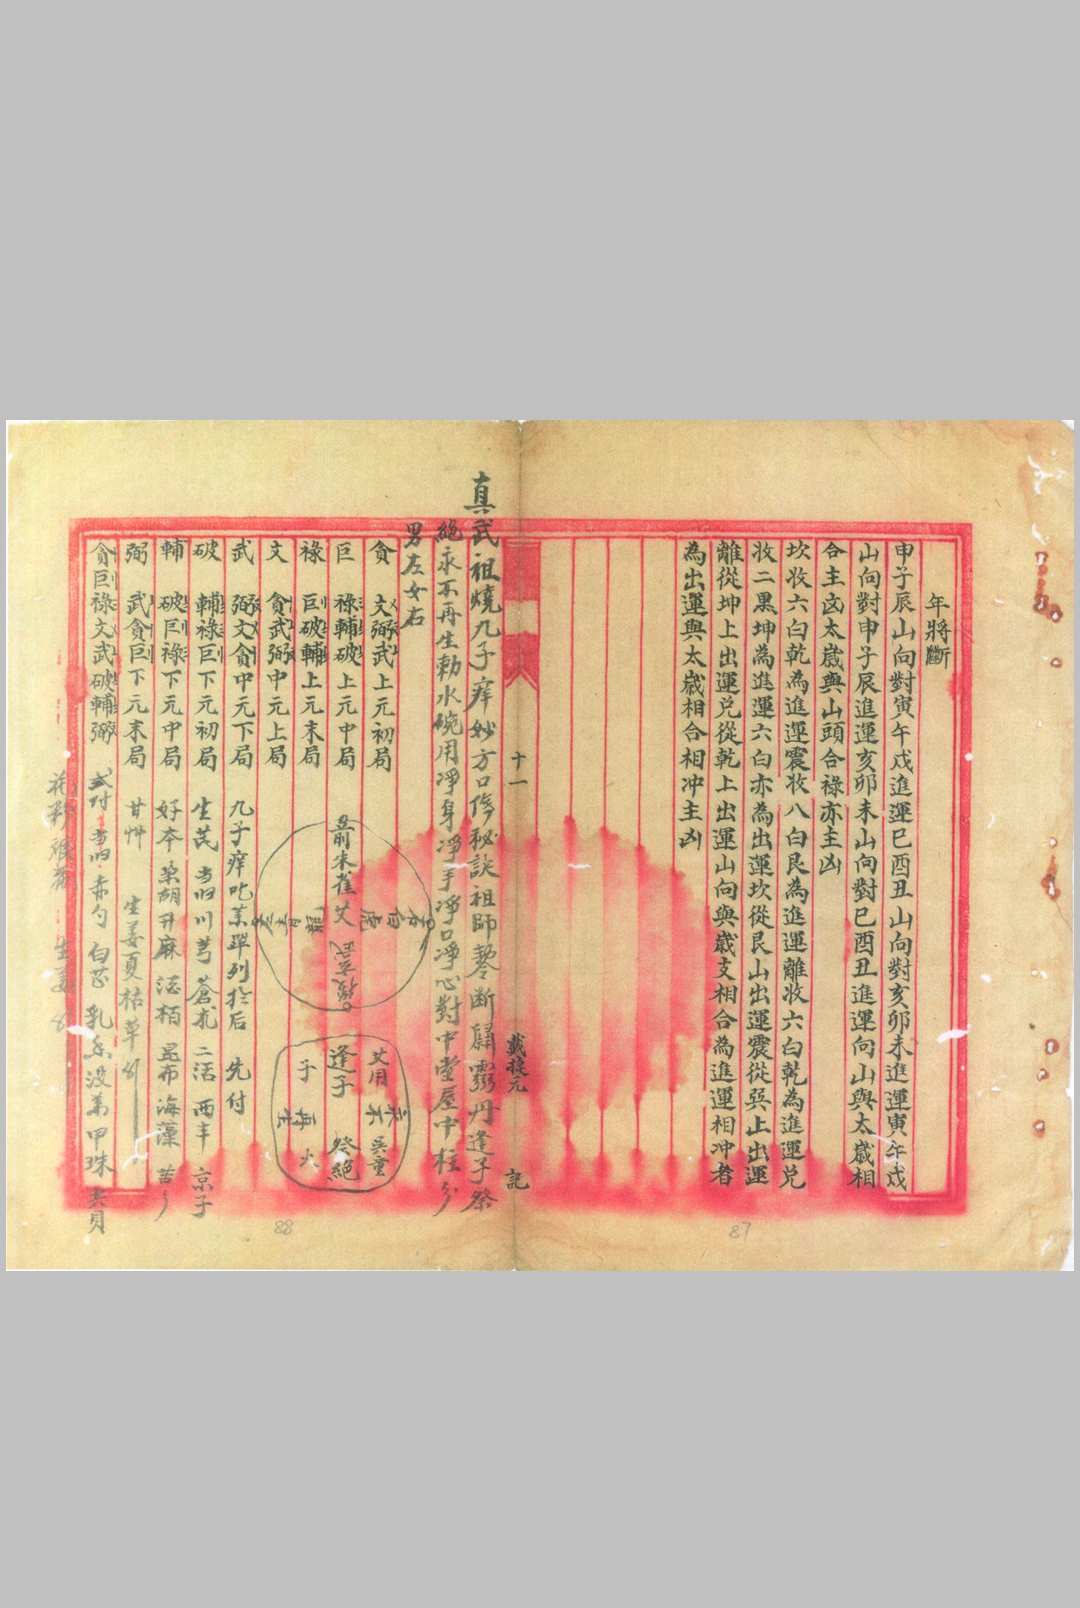 年將斷
申子辰山向對寅午戌進運巳酉丑山向對亥卯未進運寅午戌
山向對申子辰進運亥卯未山向對巳酉丑進運向山與太歲相
合主凶太歲與山頭合祿亦主凶
坎收六白乾為進運震收八白艮為進運離收六白乾為進運兌
收二黑坤為進運六白亦為出運坎從艮山出運震從巽上出運
離從坤上出運兌從乾上出運山向與歲支相合為進運相冲者
為出運與太歲相合相冲主凶
87
十一
記
真武祖燒九子痒妙方口俻秘訣祖師斷丹逢子祭
絕永不再生勅水碗用淨身淨手淨口淨心對中堂屋中柱
男左女右
貪 文弼武上元初局
巨 祿輔破上元中局
祿 巨破輔上元末局
文 貪武弼中元上局
武 弼文貪中元下局
破 輔祿巨下元初局
輔 破巨祿下元中局
弼 武貪巨下元末局
貪巨祿文武破輔弼
前朱雀 艾
後玄武
右白虎
左青龍
艾用 吳童
逢子 祭絕
子 火
九子痒吃藥單列於后 先付
生芪 当归 川芎 蒼朮 二活 西丰 京子
好本 柴胡 升麻 活栢 昆布 海藻
甘艸 生姜 夏枯草
弍付 当归 赤勺 白芷 乳香 没药 甲珠 大貝
花粉 生姜
88